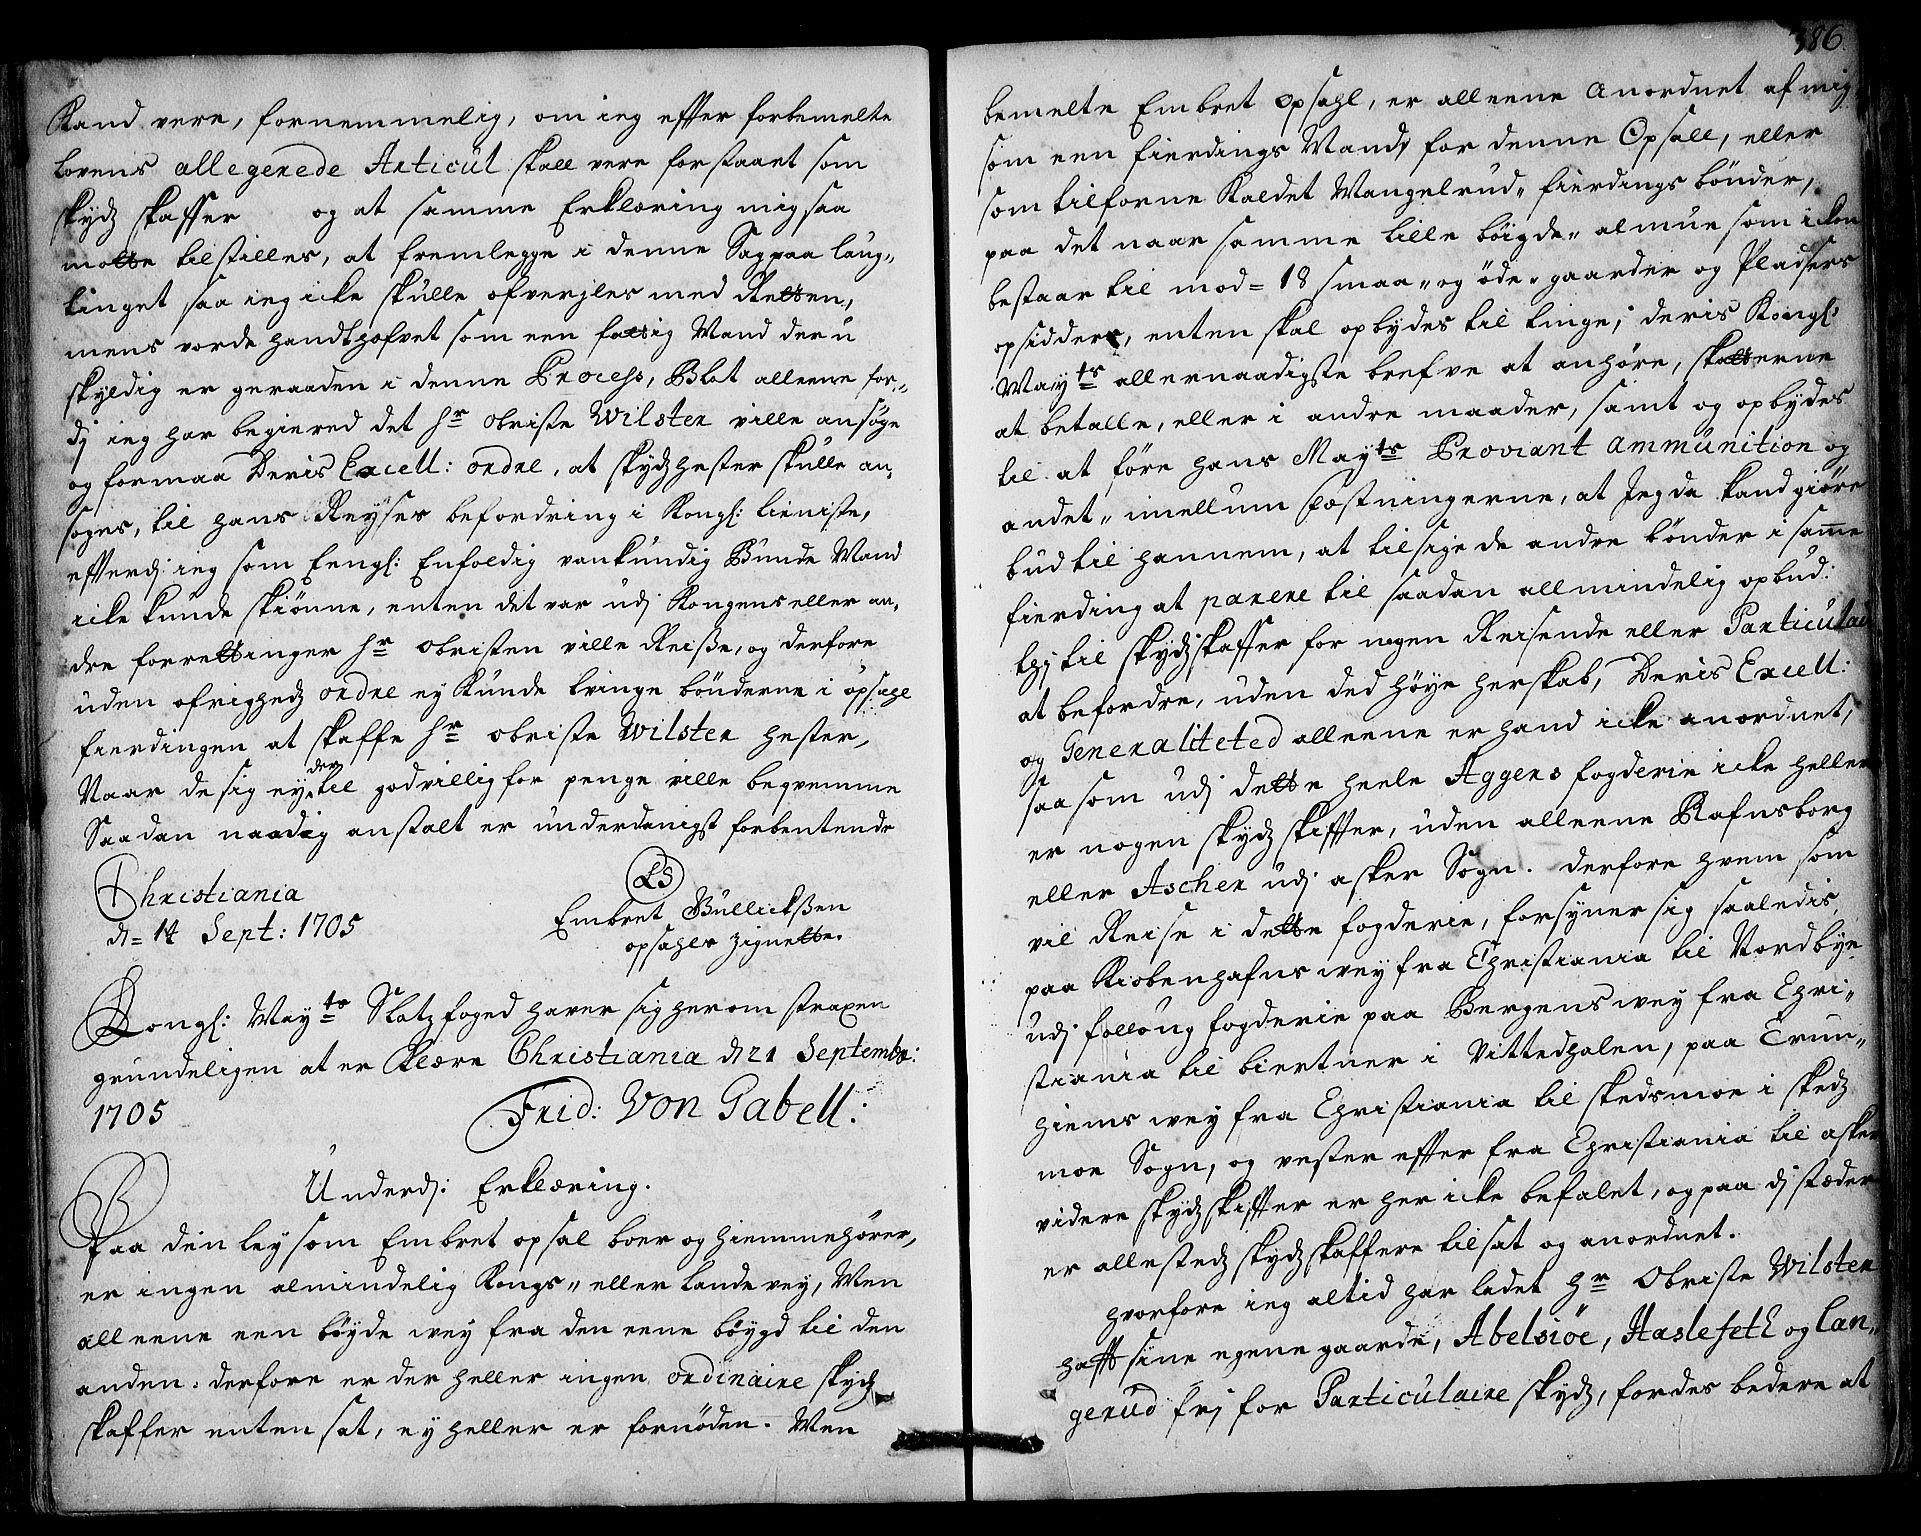 Kand vere, fornemmelig, om ieg effter forbemelte
Lovens allegerede Articul skall vere forstaaet som
skydz skaffer og at samme Erklæring mig saa
motte tilstilles, at fremlegge i denne Sag paa laug-
tinget saa ieg icke skulle ofverjles med Retten,
mens vorde handthafvet som een fattig Mand der u
skyldig er geraaden i denne Process, Blot alleene for-
dj ieg har begiered det hr Obriste Wilster ville ansöge
og formaa Deris Excell: ordre, at skydzhester skulle an-
söges, til hans Reyses befordring i Kongl: tieniste,
efterdj ieg som Eengl: Enfoldig vankundig Bunde Mand
icke kunde skiönne, enten det var udj Kongens eller an-
dre forrettinger hr Obristen ville Reiße, og derfore
uden öfrighedz ordre ey kunde tvinge bönderne i opsahl
fierdingen at skaffe hr Obriste Wilster hester,
Naar de sig ey der til godvillig for penge ville beqvemme
Saadan naadig anstalt er underdanigst forventende
Christiania
d= 14 Sept: 1705
LS
Embret Bullickßen
opsahls Zignette.
Kongl: May:ts Slotz foged haver sig herom straxen
grundeligen at er Klære Christiania d 21 Septembr:
1705
Frid: Von Gabell:
Underd: Erklæring.
Paa den ley som Embret opsal boer og hiemmehörer,
er ingen almindelig Kongs- eller Lande vey, Men
alleene een böyde wey fra den eene böygd til den
anden. derfore er der heller ingen ordinaire skydz
skaffer enten sat, ey heller er fornöden. Men
386
bemelte Embret Opsahl, er alleene anordnet af mig
som een fierdings Mand, for denne Opsall, eller
som tilforne Kaldet Vangelrud- fierdings bönder,
paa det naar samme lille böigde- almue som icken
bestaar til mod= 18 smaa- og öde- gaarder og Pladsers
opsiddere, enten skal opbydes til tinge, deris Kongl:
May:ts allernaadigste brefve at anhöre, skatterne
at betalle, eller i andre maader, samt og opbydes
til at före hans May:ts Proviant ammunition og
andet- imellum Fæstningerne, at Jeg da kand giöre
bud til hannem, at tilsige de andre bönder i samme
fierding at parere til saadan allmindelig opbud:
thj til skydzskaffer for nogen Reisende eller Particulair
at befordre, uden ded höye herskab, Deris Excell:
og Generaliteted alleene er hand icke anordnet,
saa som udj dette heele Aggers fogderie icke heller
er nogen skydz skiffter, uden alleene Rafnsborg
eller Ascher udj asker Sogn. derfore hvem som
vil Reise i dette fogderie, forsyner sig saaledis,
paa Kiöbenhafns wey fra Christiania til Nordbye
udj follöug fogderie paa Bergens wey fra Chri-
stiania til biertner i Nittedhalen, paa Trun-
hiems wey fra Christiania til skedsmoe i skedz
moe Sogn, og vester effter fra Christiania til asker
videre skydz skiffter er her icke befalet, og paa dj stæder
er allestedz skydz skaffere tilsat og anordnet.
hvorfore ieg altid har ladet hr Obriste Wilster
hafft sine egene gaarde, Abelsiöe, Haslesetl og Lan-
gerud frj for Particulaire skydz, fordes bedere at